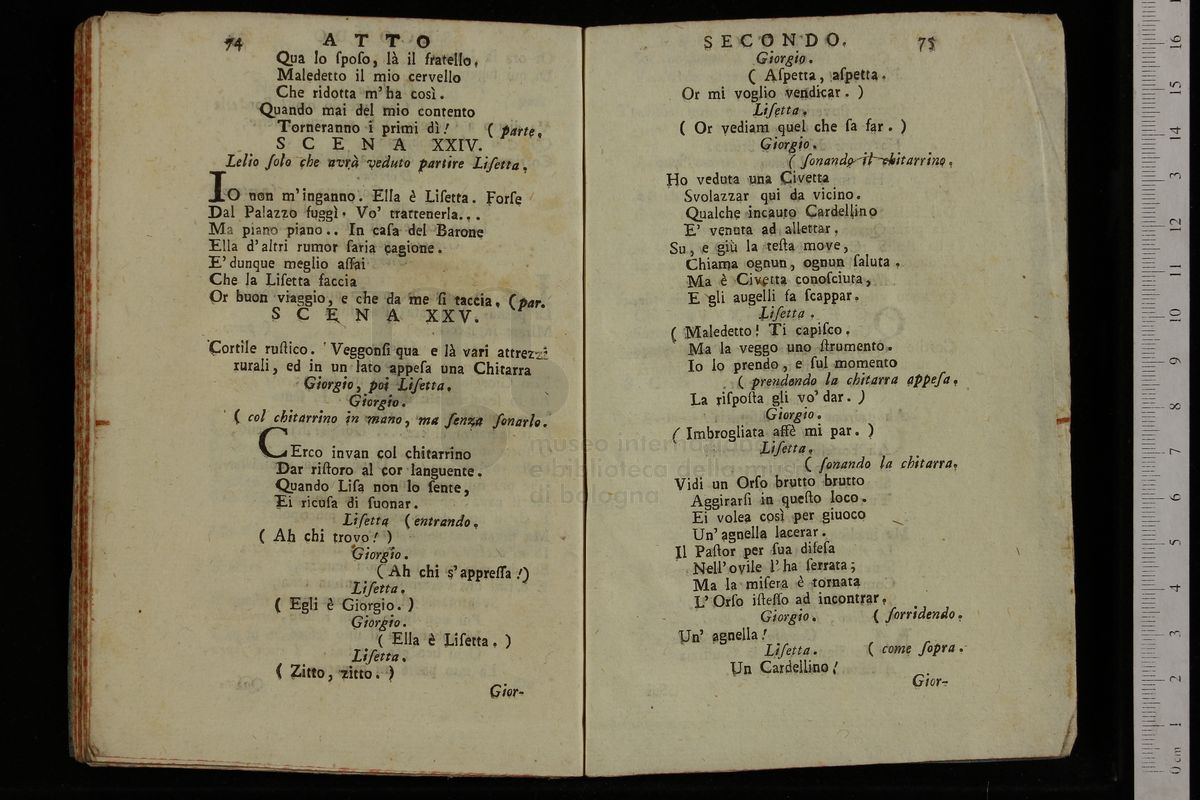 74 ATTO
Qua lo ſpoſo, là il fratello,
Maledetto il mio cervello
Che ridotta m'ha così.
Quando mai del mio contento
Torneranno i primi dì! ( parte,
SCENA XXIV.
Lelio ſolo che avrà veduto partire Liſetta,
IO non m'inganno. Ella è Liſetta. Forſe
Dal Palazzo fuggì. Vo' trattenerla...
Ma piano piano.. In caſa del Barone
Ella d'altri rumor ſaria cagione.
E' dunque meglio aſſai
Che la Liſetta faccia
Or buon viaggio, e che da me ſi taccia. (par.
SCENA XXV.
Cortile ruſtico. Veggonſi qua e là vari attrezzi
rurali, ed in un lato appeſa una Chitarra
Giorgio, poi Liſetta.
Giorgio.
( col chitarrino in mano, ma ſenza ſonarlo.
CErco invan col chitarrino
Dar riſtoro al cor languente.
Quando Liſa non lo ſente,
Ei ricuſa di ſuonar.
Liſetta (entrando,
( Ah chi trovo! )
Giorgio.
( Ah chi s'appreſſa!)
Liſetta.
( Egli è Giorgio. )
Giorgio.
( Ella è Liſetta. )
Liſetta.
( Zitto, zitto. )
Gior-
SECONDO. 75
Giorgio.
( Aſpetta, aſpetta.
Or mi voglio vendicar. )
Liſetta.
( Or vediam quel che ſa far. )
Giorgio.
( ſonando il chitarrino,
Ho veduta una Civetta
Svolazzar qui da vicino.
Qualche incauto Cardellino
E' venuta ad allettar.
Su, e giù la teſta move,
Chiama ognun, ognun ſaluta.
Ma è Civetta conoſciuta,
E gli augelli fa ſcappar.
Liſetta.
( Maledetto! Ti capiſco.
Ma la veggo uno ſtrumento.
Io lo prendo, e ſul momento
( prendendo la chitarra appeſa,
La riſpoſta gli vo' dar. )
Giorgio.
( Imbrogliata affè mi par. )
Liſetta.
( ſonando la chitarra,
Vidi un Orſo brutto brutto
Aggirarſi in queſto loco.
Ei volea così per giuoco
Un' agnella lacerar.
Il Paſtor per ſua difeſa
Nell' ovile l' ha ſerrata;
Ma la miſera è tornata
L' Orſo iſteſſo ad incontrar.
Giorgio. ( ſorridendo.
Un' agnella!
Liſetta. ( come ſopra.
Un Cardellino!
Gior-
museo internazionale
e biblioteca della musica
di bologna